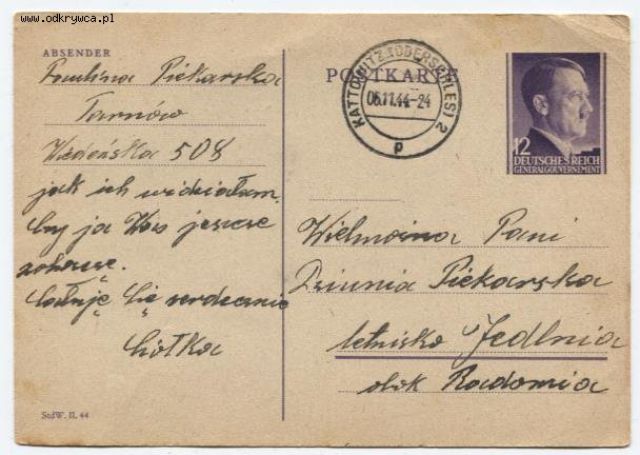 www.odkrywca.pl
ABSENDER
Paulina Piekarska
Tarnów
Wedeńska 508
jak ich widziałam.
Czy ja Was jeszcze
zobaczę.
Całuję Cię serdecznie
Ciotka
StdW. II. 44
POSTKARTE
KATTOWITZ (OBERSCHLES) 2
06.11.44-24
p
12
DEUTSCHES REICH
GENERALGOUVERNEMENT
Wielmożna Pani
Dziunia Piekarska
letnisko Jedlnia
obok Radomia